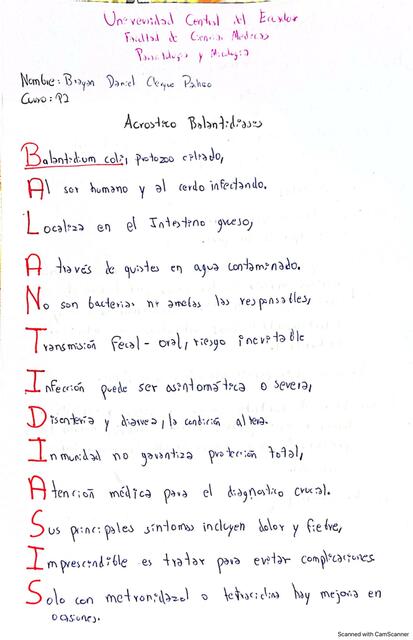 Universidad Central del Ecuador
Facultad de Ciencias Médicas
Parasitología y Micología
Nombre: Brayan Daniel
Curso: P2
Acrostico Balantidiasis
Balantidium coli, protozoo ciliado,
Al ser humano y al cerdo infectando.
Localiza en el Intestino grueso,
A través de quistes en agua contaminada.
No son bacterias ni amebas las responsables,
Transmisión fecal - oral, riesgo inevitable
Infección puede ser asintomática o severa,
Disentería y diarrea, la condición altera.
Inmunidad no garantiza protección total,
Atención médica para el diagnostico crucial.
Sus principales síntomas incluyen dolor y fiebre,
Imprescindible es tratar para evitar complicaciones
Solo con metronidazol o tetraciclina hay mejoria en
ocasiones.
Scanned with CamScanner